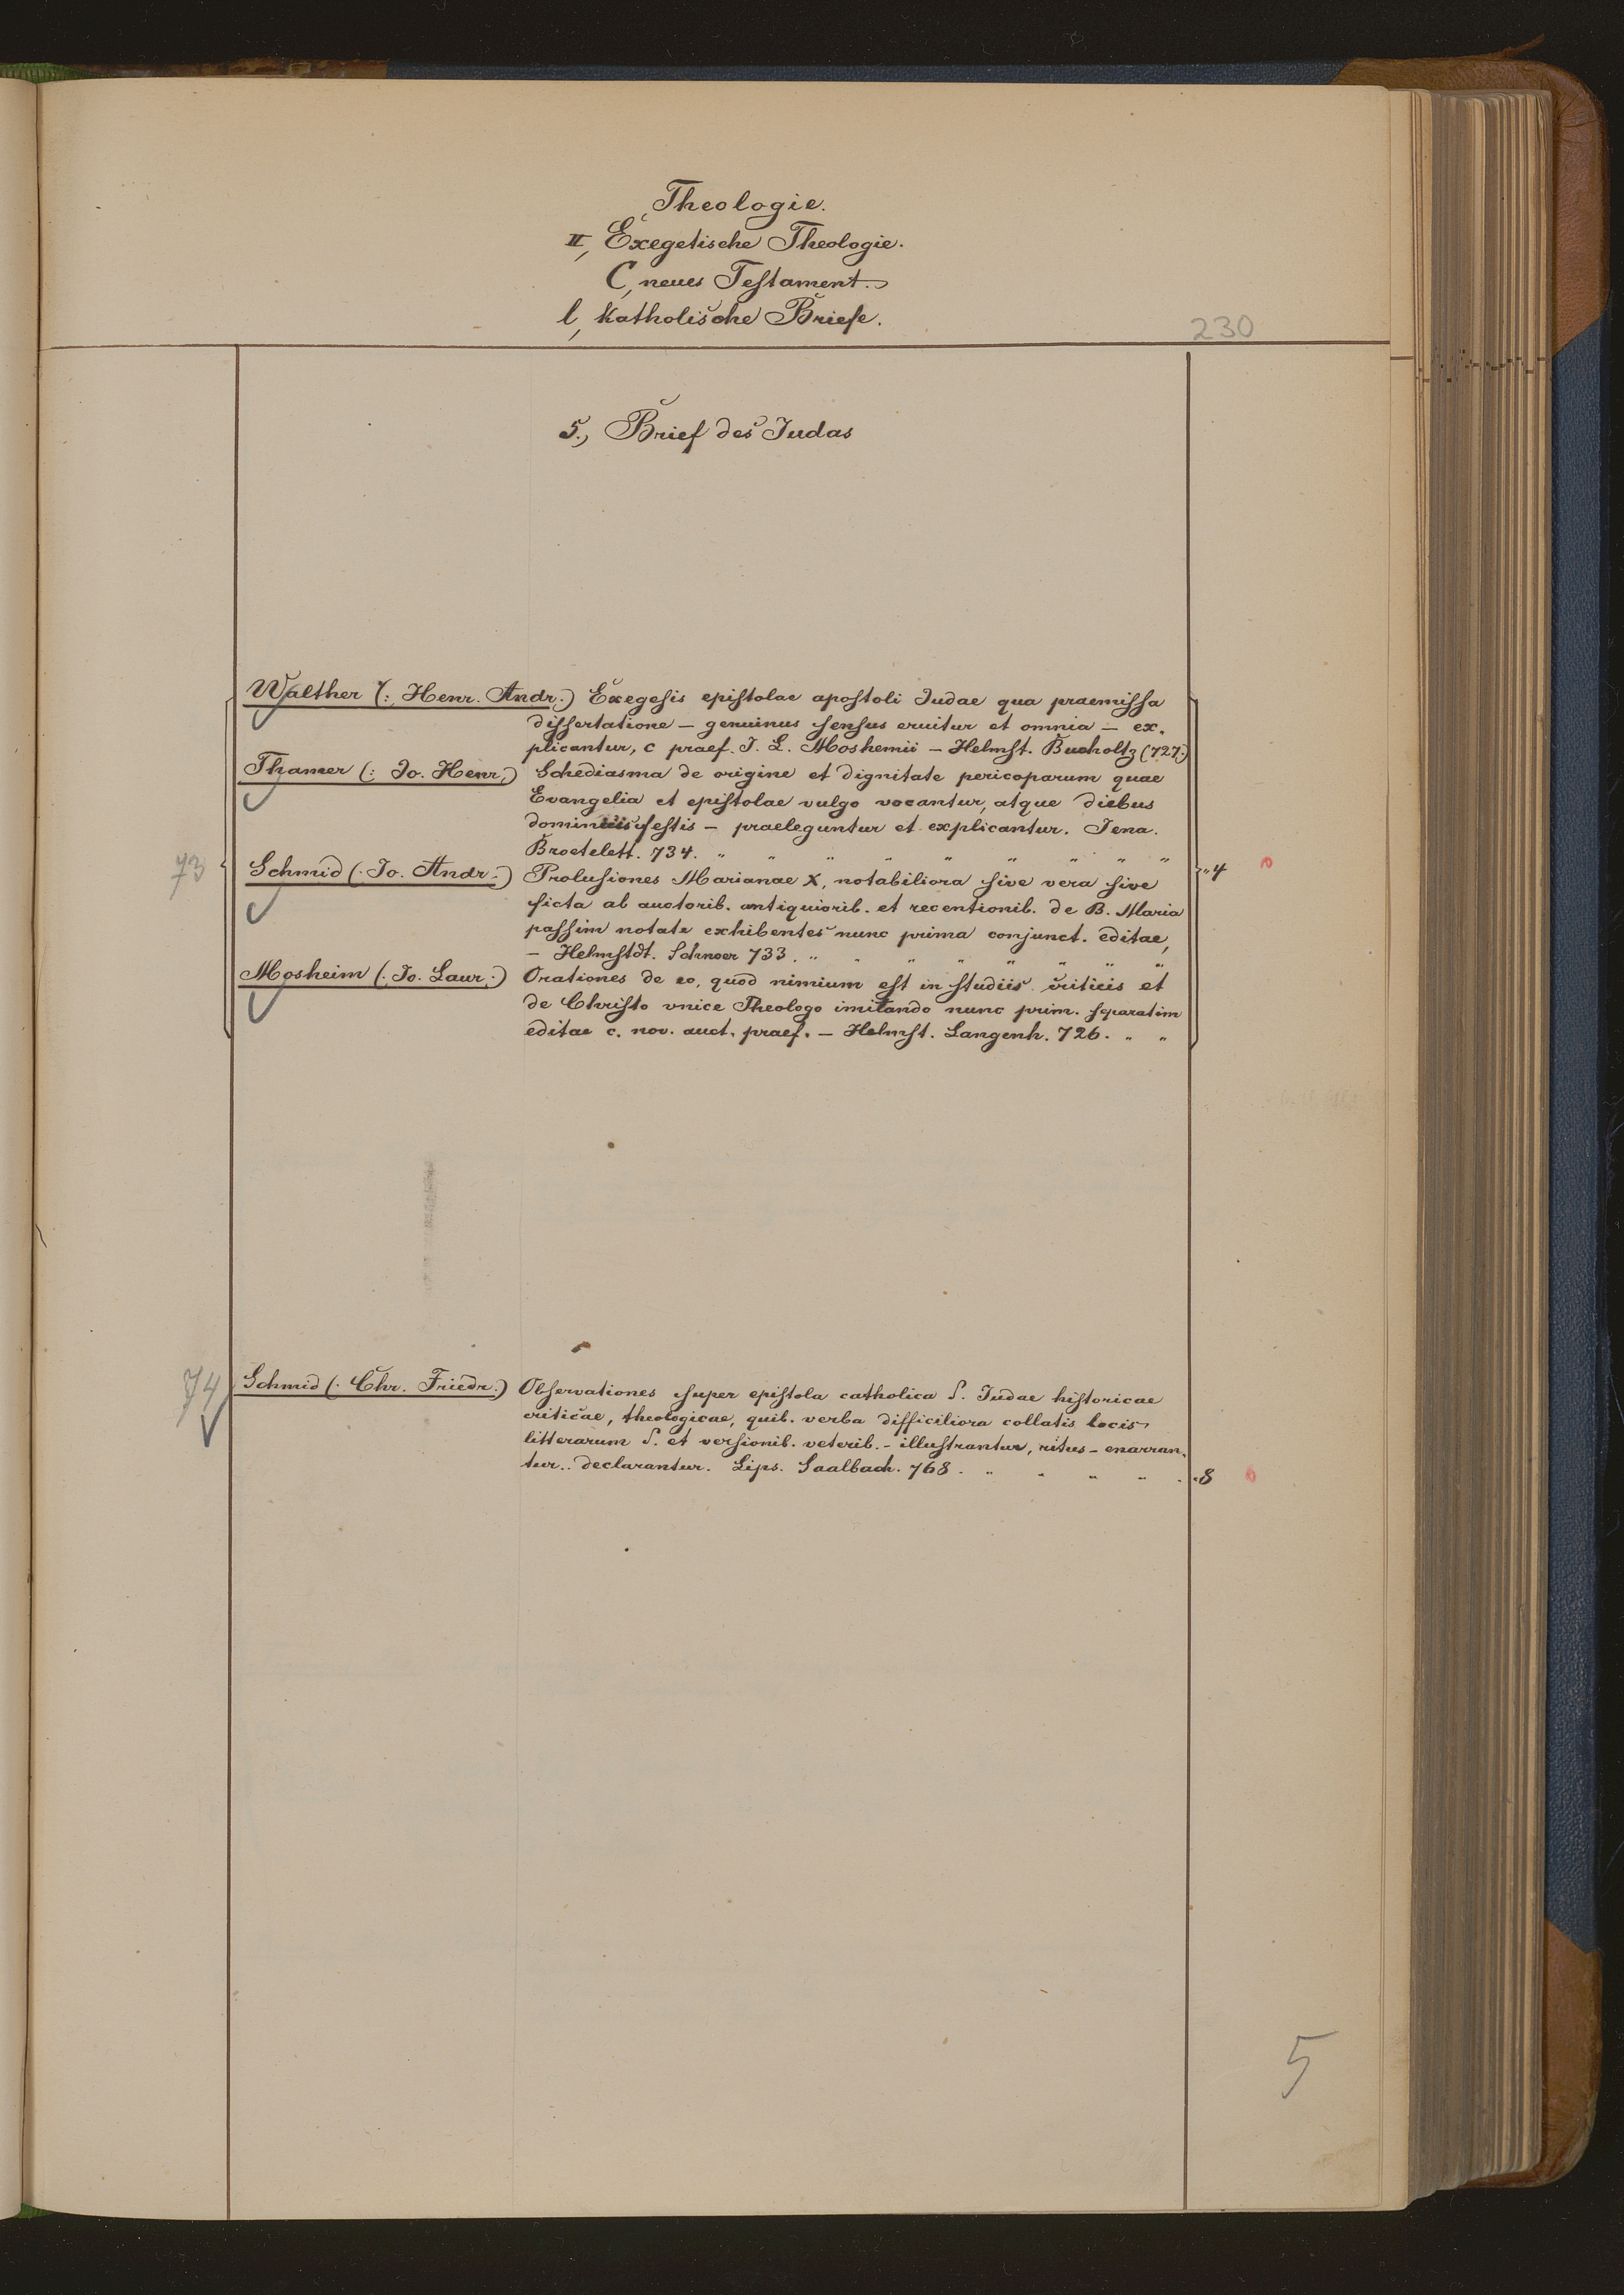 Theologie.
II, Exegetische Theologie.
C, neues Testament.
l, Katholische Briefe.
230
5., Brief des Judas
Walther (: Henr. Andr.:) Exegesis epistolae apostoli Judae qua praemissa
dissertatione – genuinus sensus eruitur et omnia – ex.
plicantur, c praef. J. L. Moshemii – Helmst. Buoholtz (727.)
Thamer (: Jo. Henr.) Schediasma de origine et dignitate pericoparum quae
Evangelia et epistolae vulgo vocantur, atque diebus
festis – praeleguntur et explicantur. Jena.
Broetelett. 734. " " " " " " " " "
73 Schmid (. Jo. Andr.:) Prolusiones Marianae X, notabiliora sive vera sive " 4
ficta ab auctorib. antiquiorib. et recentionib. de B. Maria
passim notate exhibentes nunc prima conjunct. editae,
– Helmstdt. Schnoer 733. " " " " " " " "
Mosheim (. Jo. Laur.:) Orationes de eo, quod nimium est in studiis criticis et
de Christo vnice Theologo imitando nunc prim. separatim
editae c. nov. auct. praef. – Helmst. Langenh. 726. " "
74 Schmid (. Chr. Friedr.) Observationes super epistola catholica S. Judae historicae
criticae, theologicae, quib. verba difficiliora collatis locis
litterarum S. et versionib. veterib. – illustrantur, ritus – enarran.
tur.. declarantur. Lips. Saalbach. 768. " " " " " 8
5